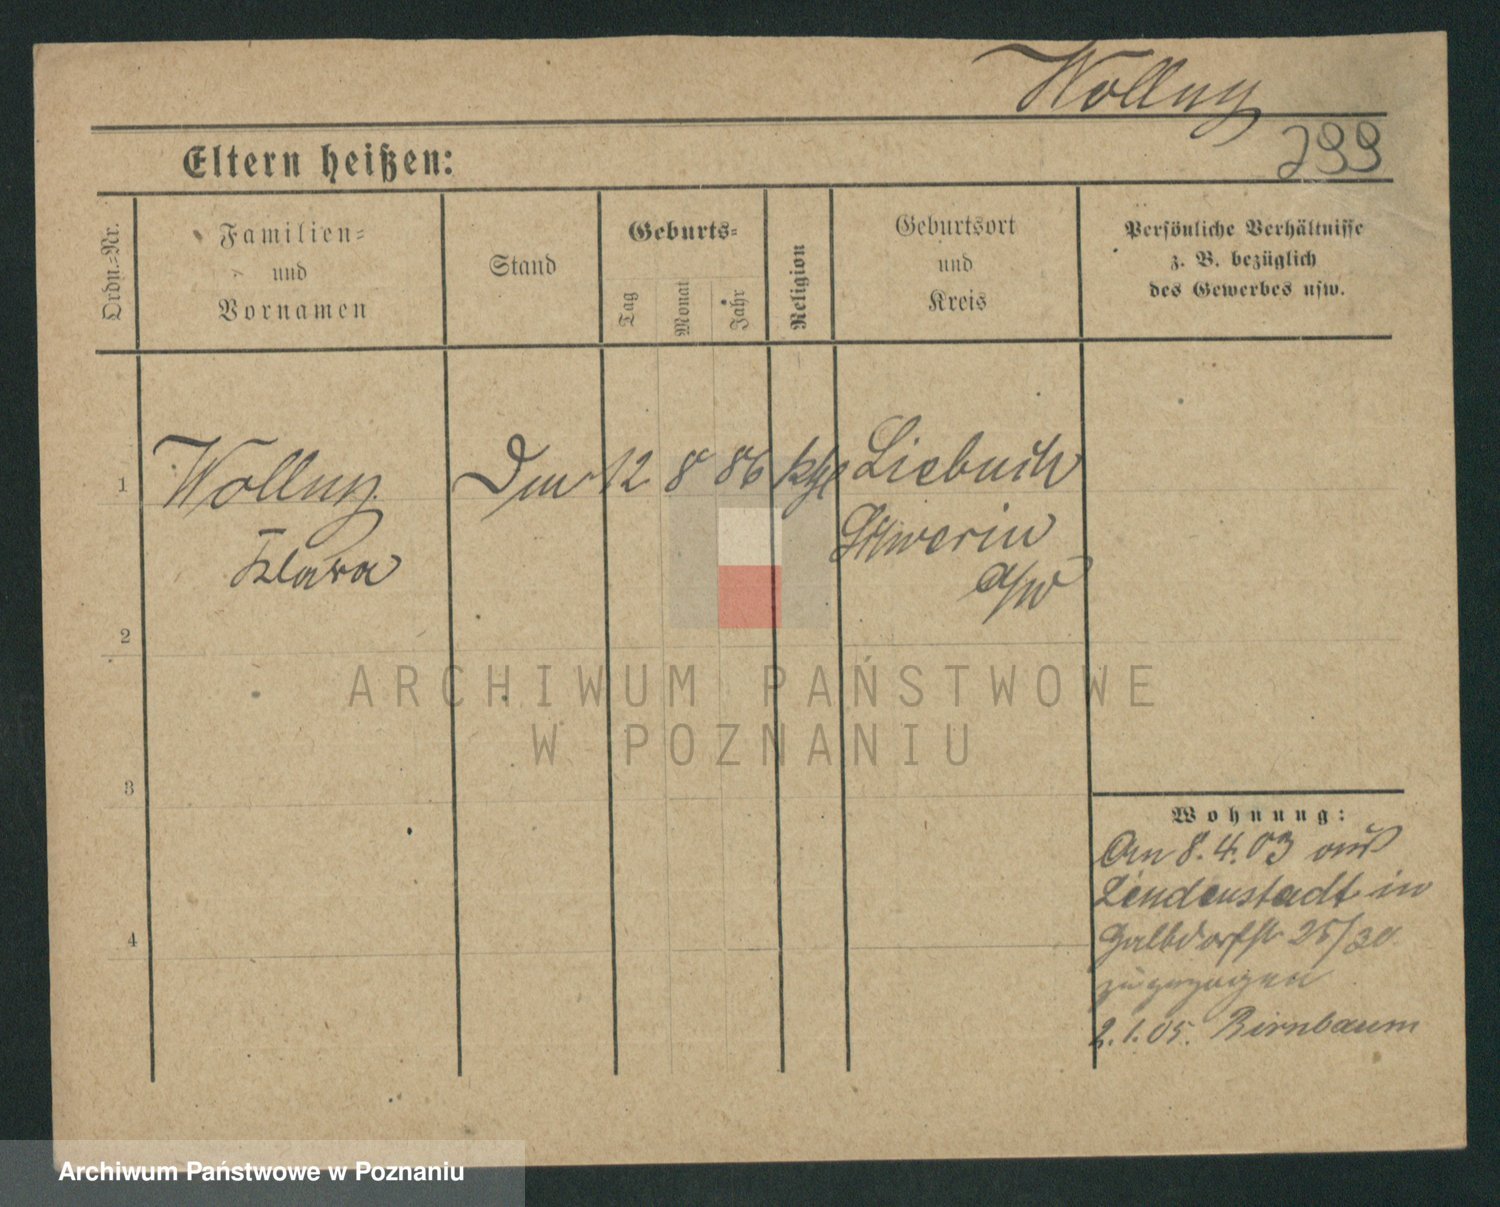 Wollny
299
Eltern heißen:
Ordn.-Nr.
Familien-
und
Vornamen
Stand
Geburts-
Tag
Monat
Jahr
Religion
Geburtsort
und
Kreis
Persönliche Verhältnisse
z. B. bezüglich
des Gewerbes usw.
1 Wollny 12 8 86 kth Liebuch
Klara Schwerin
a/W
2
3
4
ARCHIWUM PAŃSTWOWE
W POZNANIU
Wohnung:
Am 8.4.03 aus
Lindenstadt in
25/30
zugezogen
2.1.05. Birnbaum
Archiwum Państwowe w Poznaniu